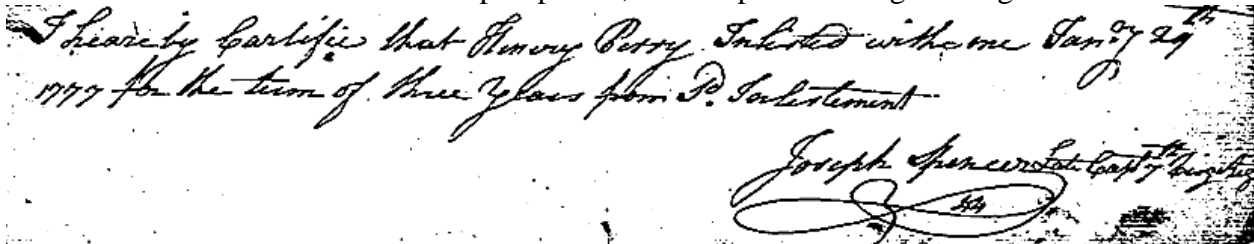 I heareby Cartifie that Henry Perry Inlisted with me Jan.ry 29th
1777 for the term of three Years from Sd. Inlestement
Joseph Spencer Late Capt 7th Virga Reg